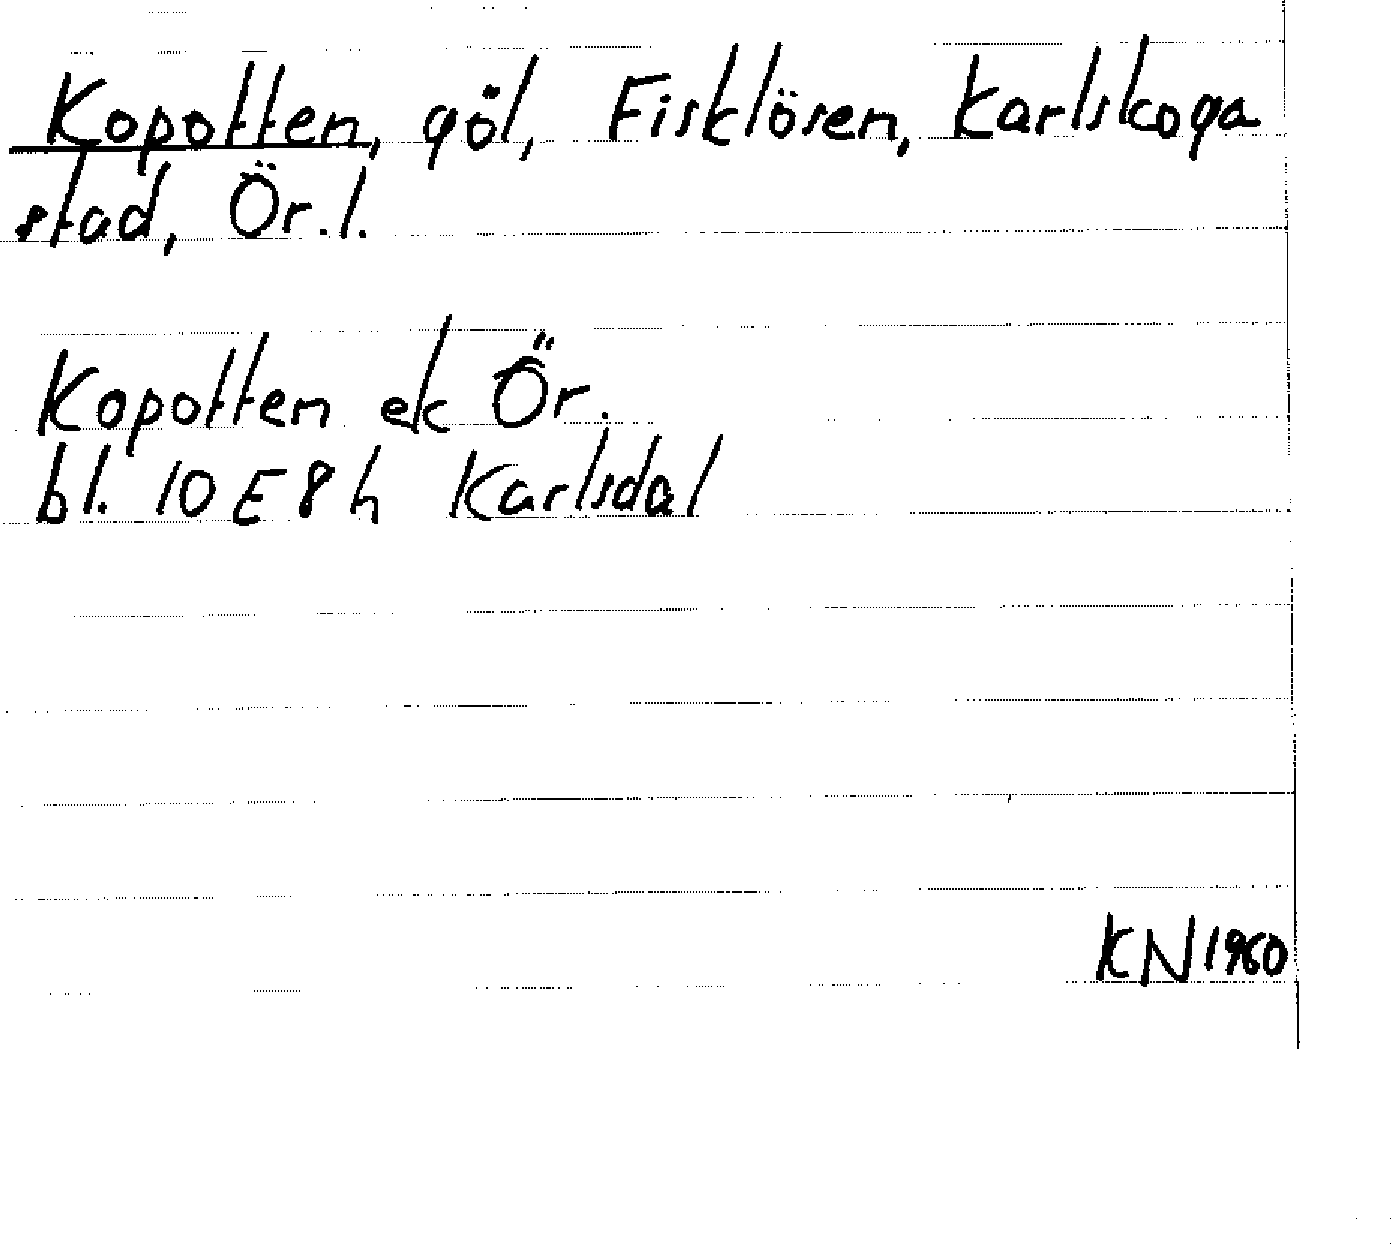 Kopotten, göl, Fisklösen, Karlskoga
stad, Ör.l.
Kopotten ek Ör.
bl. 10E8h Karlsdal
KN1960